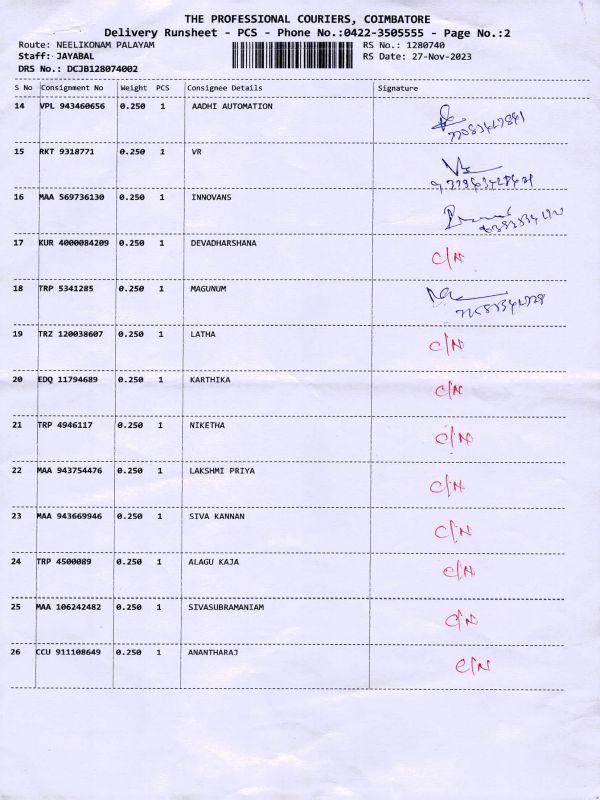 THE PROFESSIONAL COURIERS, COIMBATORE
Delivery Runsheet - PCS - Phone No.:0422-3505555 - Page No.:2
Route: NEELIKONAM PALAYAM RS No.: 1280740
Staff: JAYABAL RS Date: 27-Nov-2023
DRS No.: DCJB128074002
S No Consignment No Weight PCS Consignee Details Signature
14 VPL 943460656 0.250 1 AADHI AUTOMATION
15 RKT 9318771 0.250 1 VR
16 MAA 569736130 0.250 1 INNOVANS
17 KUR 4000084209 0.250 1 DEVADHARSHANA C/N
18 TRP 5341285 0.250 1 MAGUNUM
19 TRZ 120038607 0.250 1 LATHA C/N
20 EDQ 11794689 0.250 1 KARTHIKA C/N
21 TRP 4946117 0.250 1 NIKETHA C/N
22 MAA 943754476 0.250 1 LAKSHMI PRIYA C/N
23 MAA 943669946 0.250 1 SIVA KANNAN C/N
24 TRP 4500089 0.250 1 ALAGU KAJA C/N
25 MAA 106242482 0.250 1 SIVASUBRAMANIAM C/N
26 CCU 911108649 0.250 1 ANANTHARAJ C/N